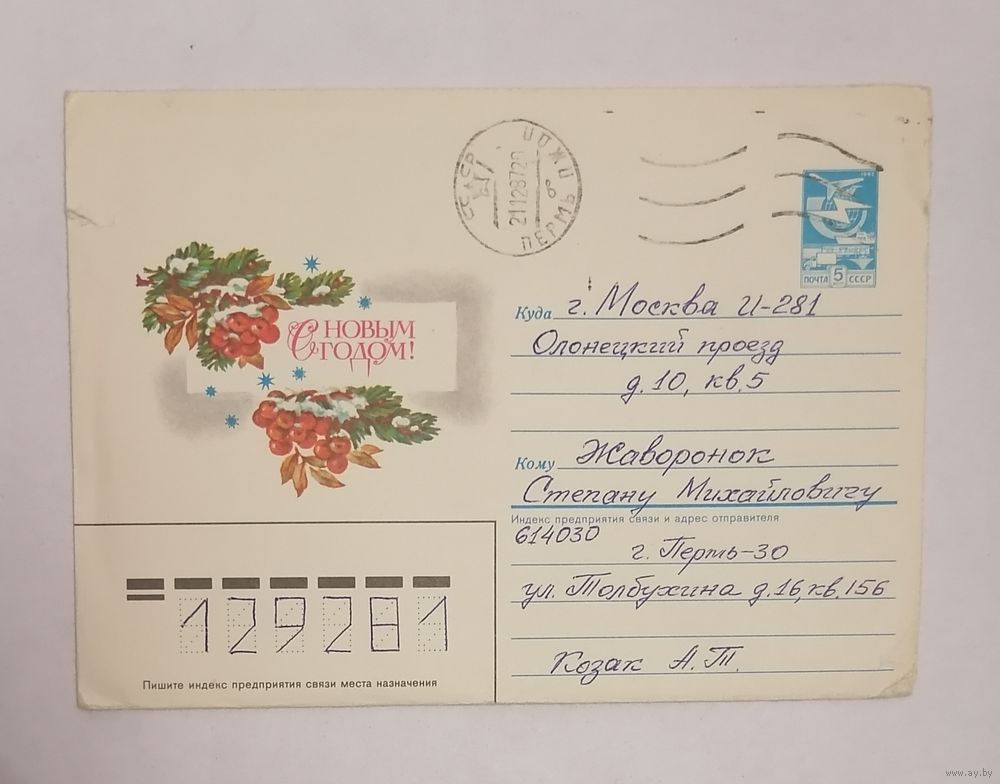 СССР
21 12 87 20
ПЕРМЬ
1982
ПОЧТА 5 СССР
С НОВЫМ
ГОДОМ!
Куда г. Москва И-281
Олонецкий проезд
д. 10, кв. 5
Кому Жаворонок
Степану Михайловичу
Индекс предприятия связи и адрес отправителя
614030
г. Пермь-30
ул. Толбухина д. 16, кв. 156
Козак А. Т.
129281
Пишите индекс предприятия связи места назначения
www.ay.by